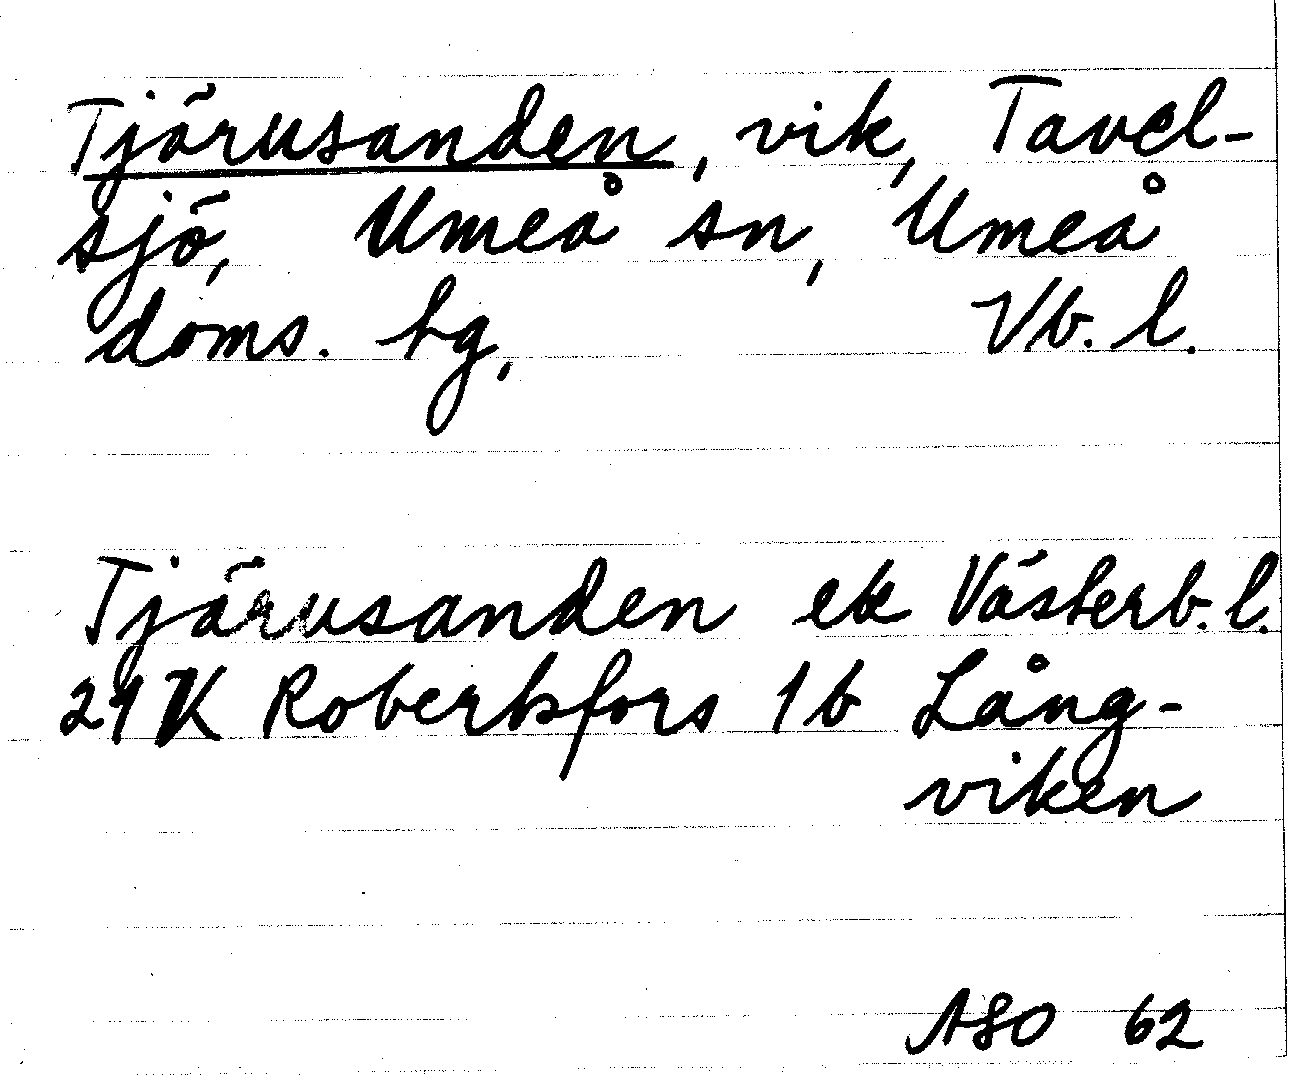 Tjärusanden, vik, Tavel-
sjö, Umeå sn, Umeå
doms. hg, Vb. l.
Tjärusanden ek Västerb. l.
21 K Robertsfors 1 b Lång-
viken
ASO 62